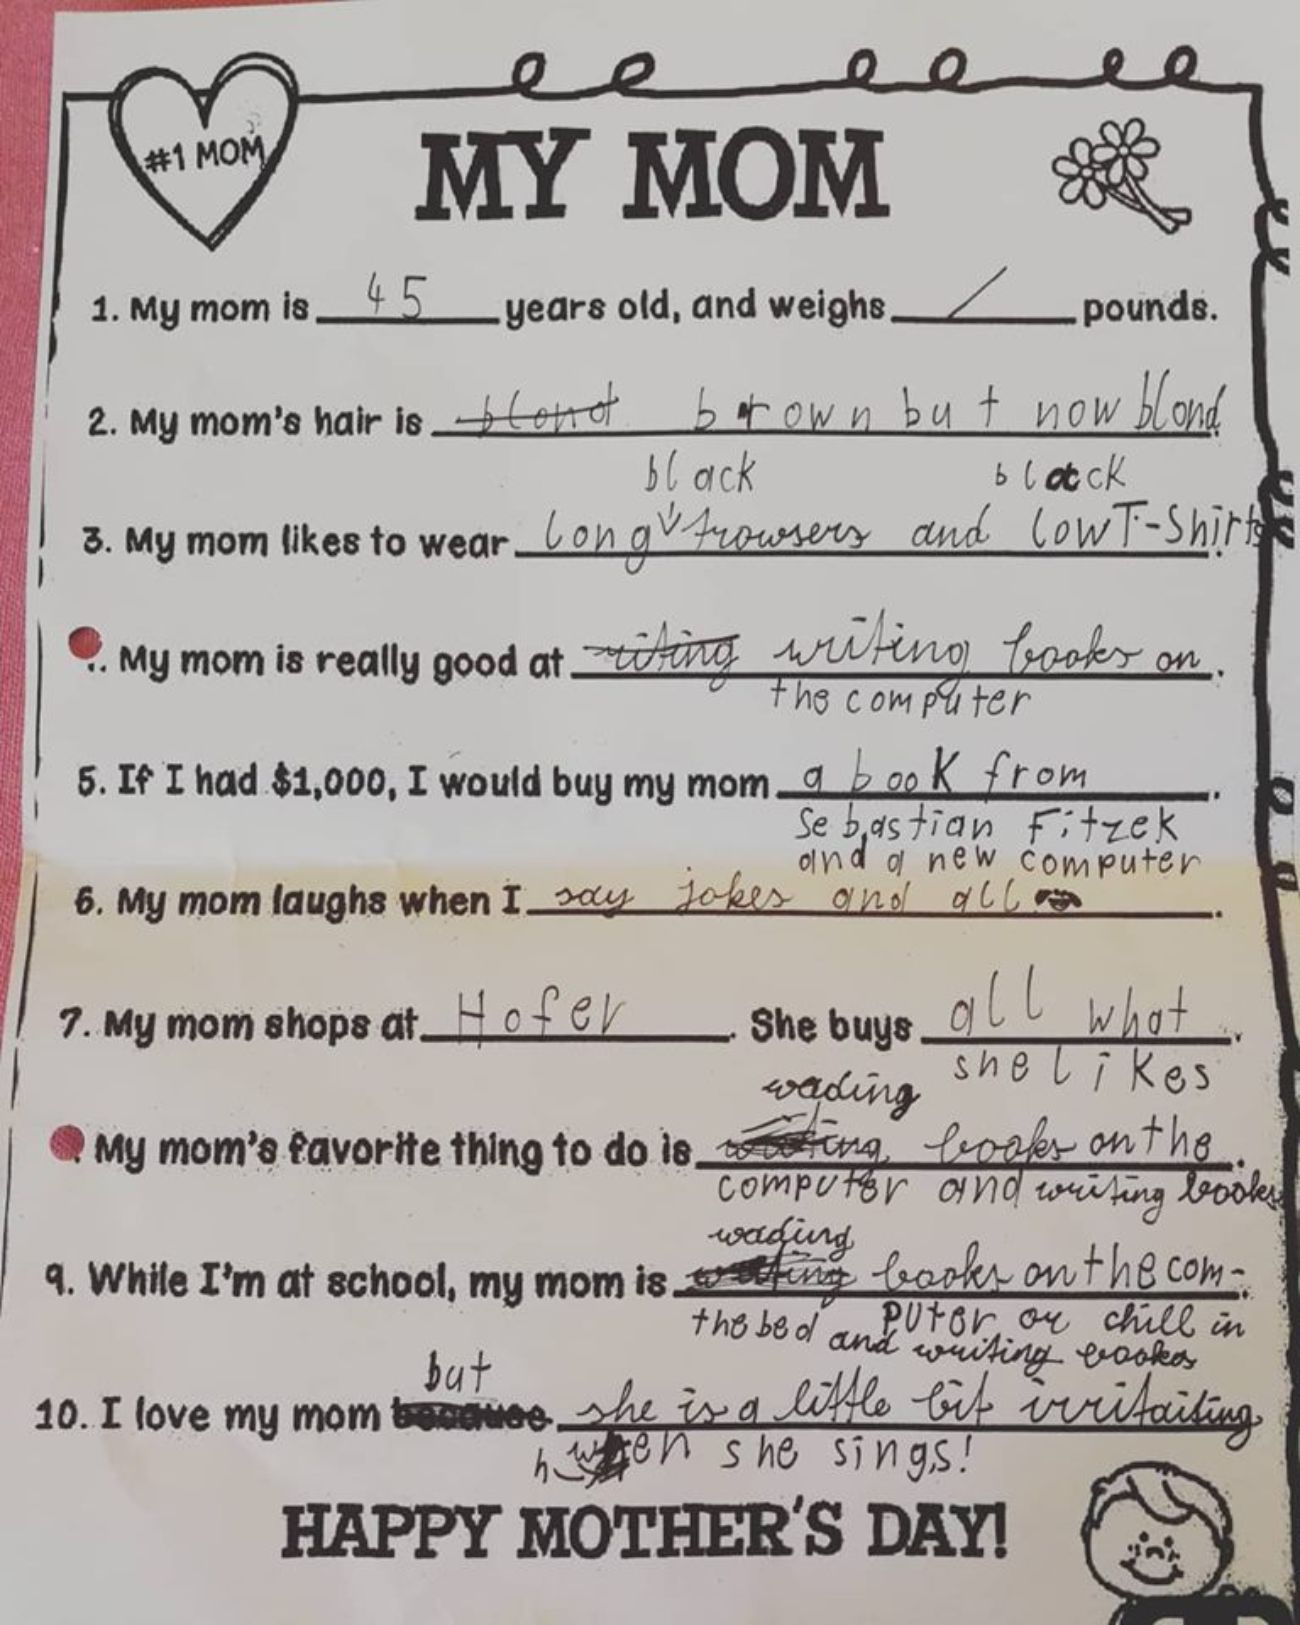 #1 MOM
MY MOM
1. My mom is 45 years old, and weighs / pounds.
2. My mom's hair is blond brown but now blond
black black
3. My mom likes to wear long trowsers and low T-Shirts
. My mom is really good at riting writing books on.
the computer
5. If I had $1,000, I would buy my mom a book from.
Sebastian Fitzek
and a new computer
6. My mom laughs when I say jokes and all.
7. My mom shops at Hofer. She buys all what.
she likes
wading
. My mom's favorite thing to do is books on the.
computer and writing books
wading
9. While I'm at school, my mom is books on the com-.
the bed puter or chill in
and writing books
but
10. I love my mom because she is a little bit irritaiting
when she sings!
HAPPY MOTHER'S DAY!